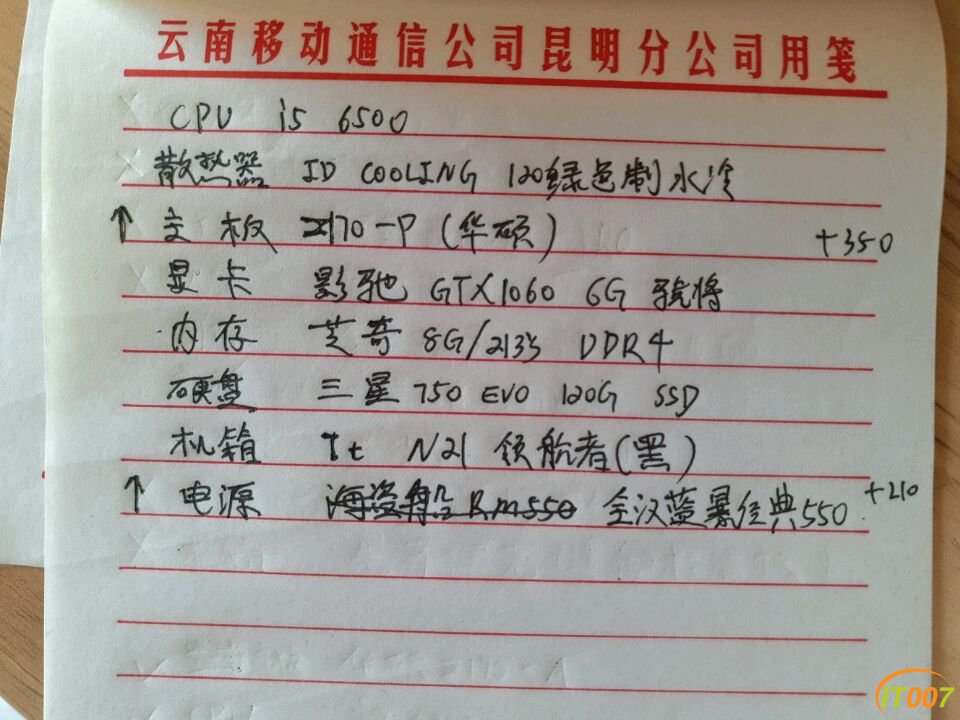 云南移动通信公司昆明分公司用笺
CPU i5 6500
散热器 ID COOLING 120绿色制水冷
↑ 主板 Z170-P (华硕) +350
显卡 影驰 GTX1060 6G 骁将
内存 芝奇 8G/2133 DDR4
硬盘 三星 750 EVO 120G SSD
机箱 Tt N21 领航者(黑)
↑ 电源 海盗船 RM550 全汉蓝暴经典550 +210
IT007